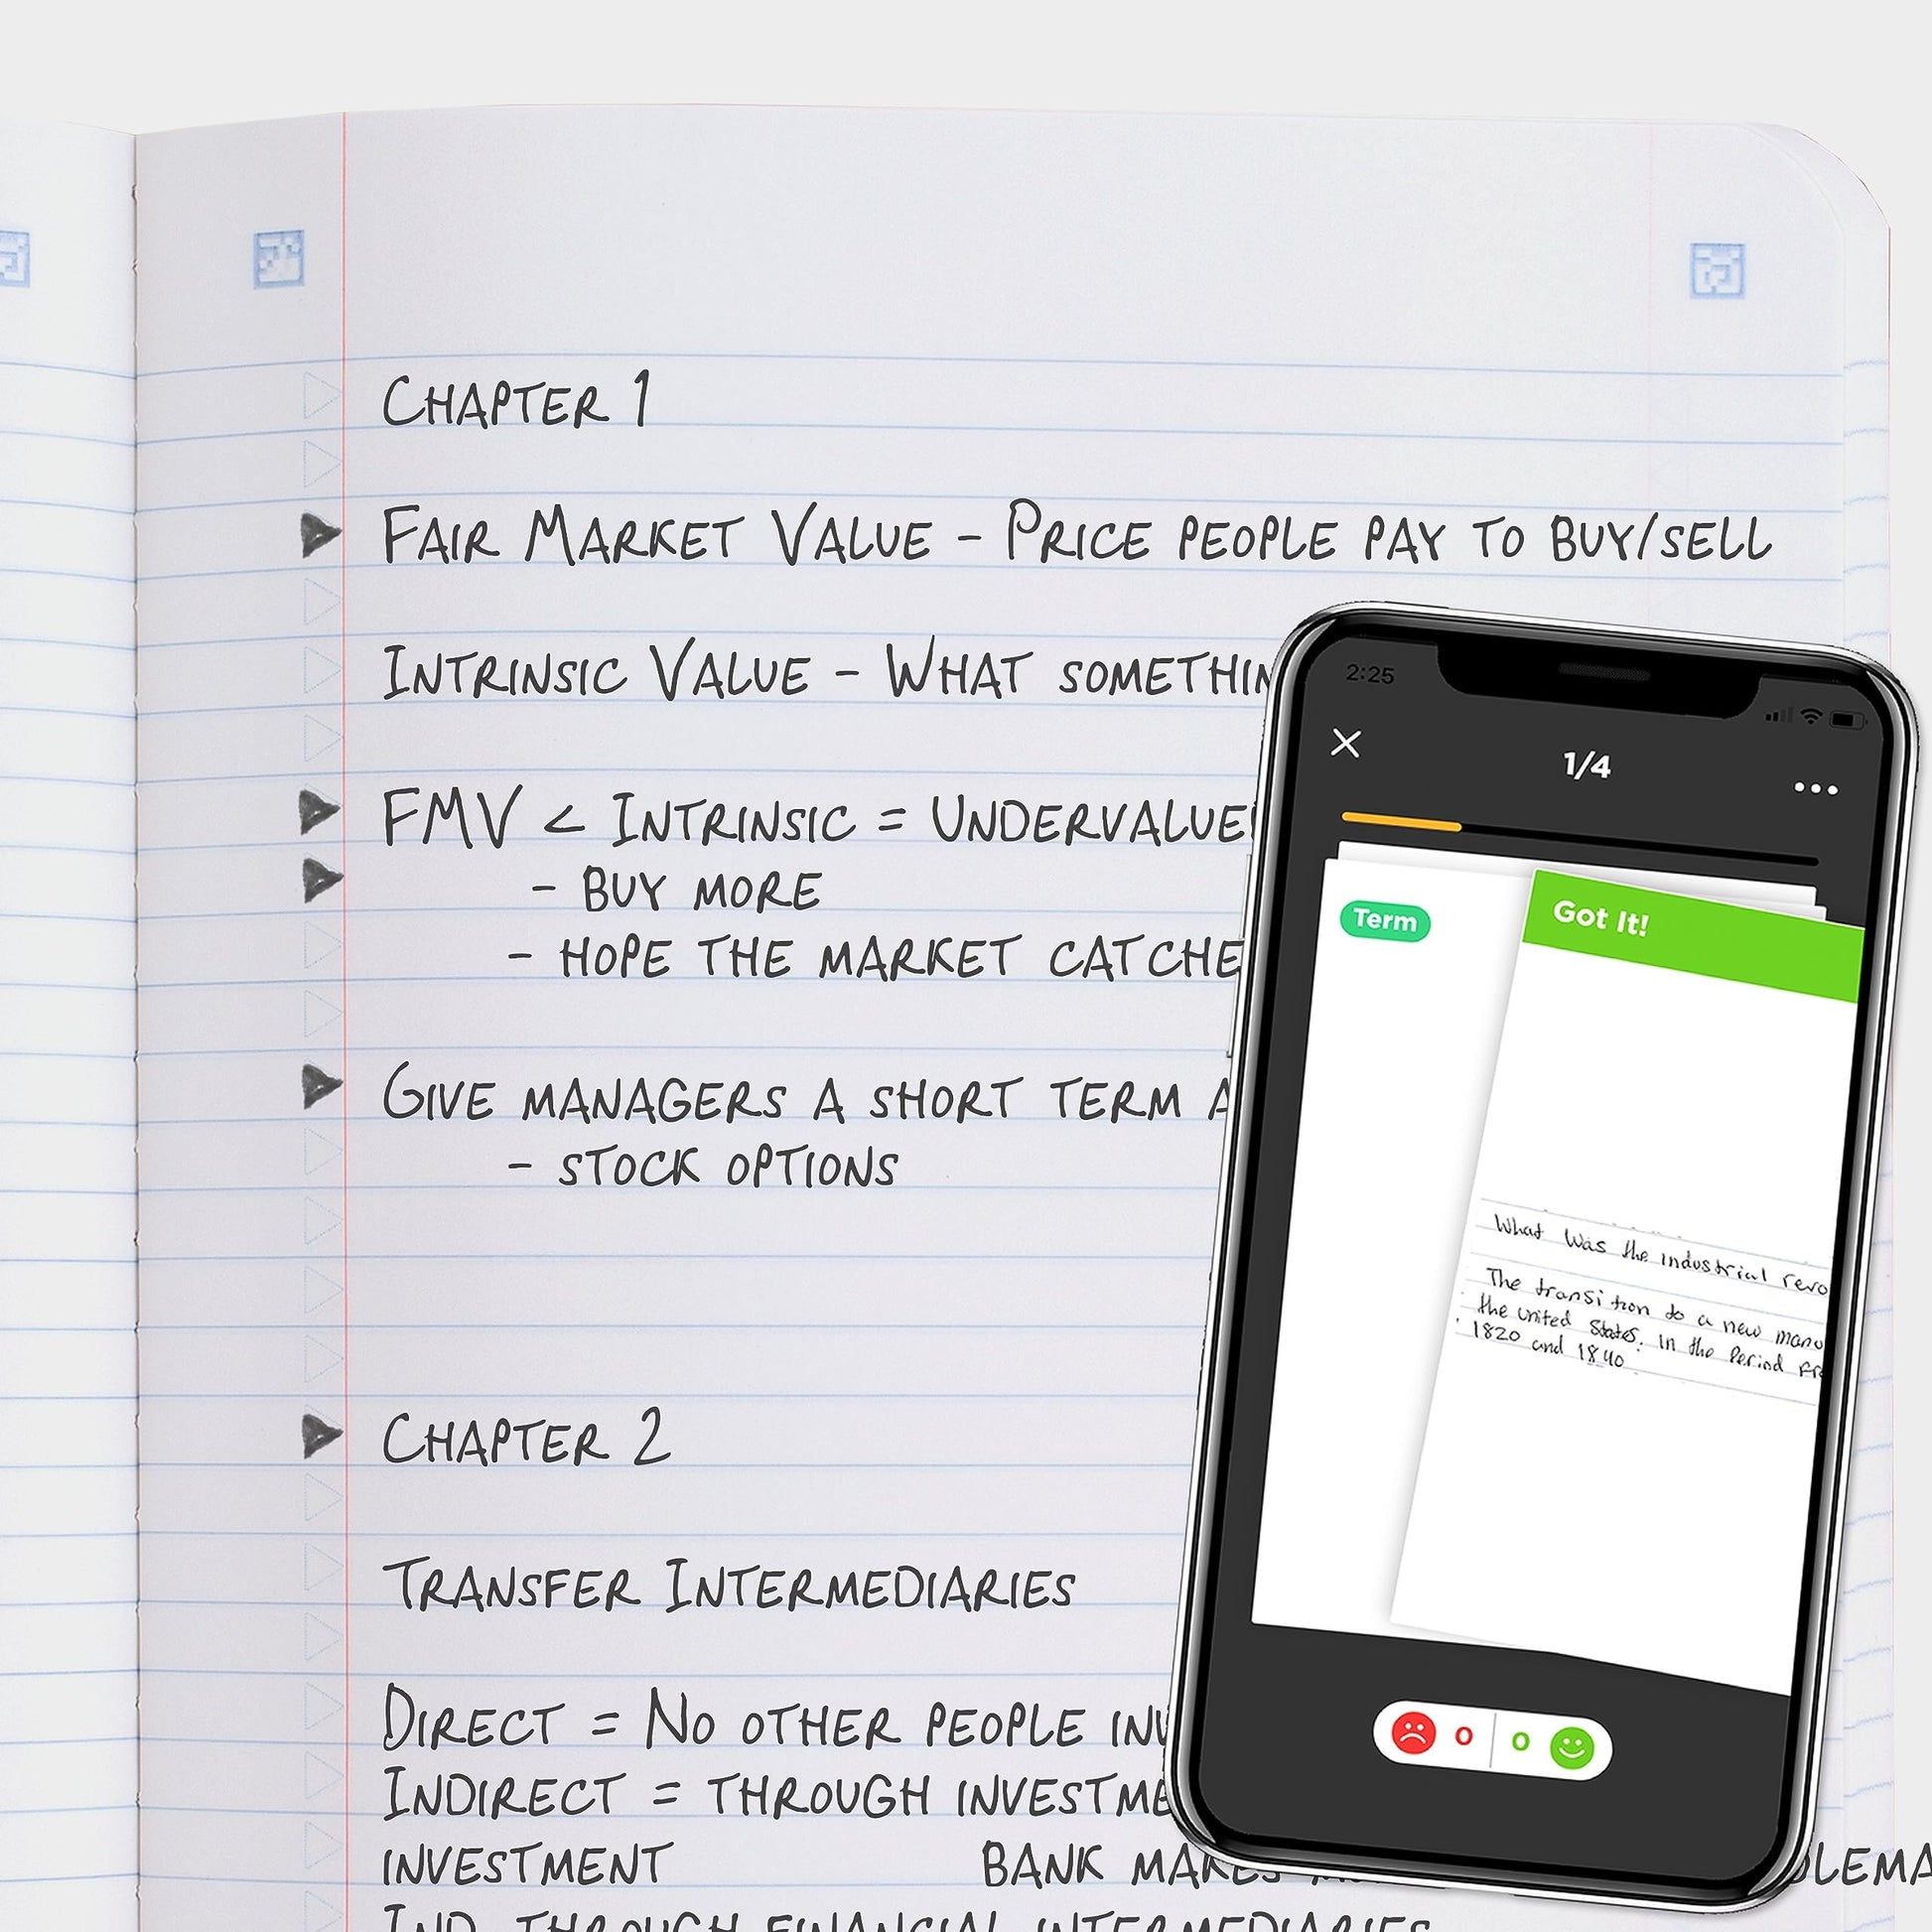 CHAPTER 1
FAIR MARKET VALUE - PRICE PEOPLE PAY TO BUY/SELL
INTRINSIC VALUE - WHAT
FMV < INTRINSIC =
- BUY MORE
- HOPE THE MARKET
GIVE MANAGERS A SHORT TERM
- STOCK OPTIONS
CHAPTER 2
TRANSFER INTERMEDIARIES
DIRECT = NO OTHER PEOPLE
INDIRECT = THROUGH
INVESTMENT BANK MAKES
IND. THROUGH FINANCIAL INTERMEDIARIES
2:25
1/4
Term
Got It!
What was the industrial
The transition to a new
the united States. in the Period
1820 and 1840
0 0